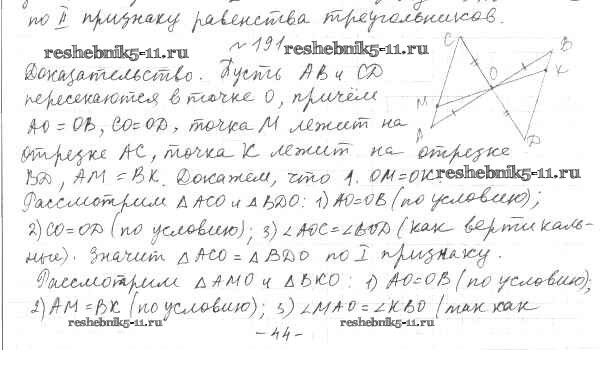 по II признаку равенства треугольников.
№ 191
reshebnik5-11.ru
reshebnik5-11.ru
Доказательство. Пусть AB и CD
пересекаются в точке O, причём
AO = OB, CO = OD, точка M лежит на
отрезке AC, точка K лежит на отрезке
BD, AM = BK. Докажем, что 1. OM = OK
reshebnik5-11.ru
Рассмотрим △ ACO и △ BDO: 1) AO = OB (по условию);
2) CO = OD (по условию); 3) ∠AOC = ∠BOD (как вертикаль-
ные). Значит △ ACO = △ BDO по I признаку.
Рассмотрим △ AMO и △ BKO: 1) AO = OB (по условию);
2) AM = BK (по условию); 3) ∠MAO = ∠KBO (так как
reshebnik5-11.ru
reshebnik5-11.ru
- 44 -
C
B
O
K
M
A
D